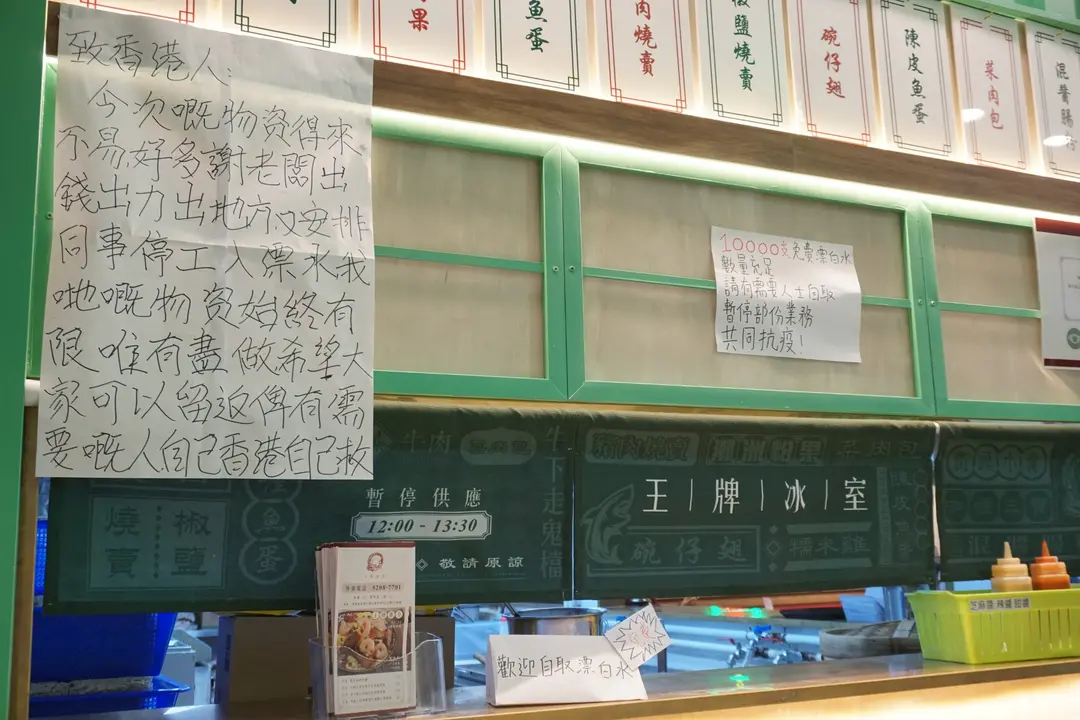 致香港人:
今次嘅物資得來
不易,好多謝老闆出
錢出力出地方又安排
同事停工入漂水,我
哋嘅物資始終有
限 唯有盡做希望大
家可以留返俾有需
要嘅人,自己香港自己救
果
魚蛋
肉燒賣
椒鹽燒賣
碗仔翅
陳皮魚蛋
菜肉包
混醬腸粉
10000支免費漂白水
數量充足
請有需要人士自取
暫停部份業務
共同抗疫!
牛肉
牛下走鬼檔
暫停供應
12:00 - 13:30
敬請原諒
燒賣
椒鹽
魚蛋
王|牌|冰|室
碗仔翅
糯米雞
菜肉包
外賣電話 8208-7701
歡迎自取漂白水
芝麻醬 辣醬 甜醬